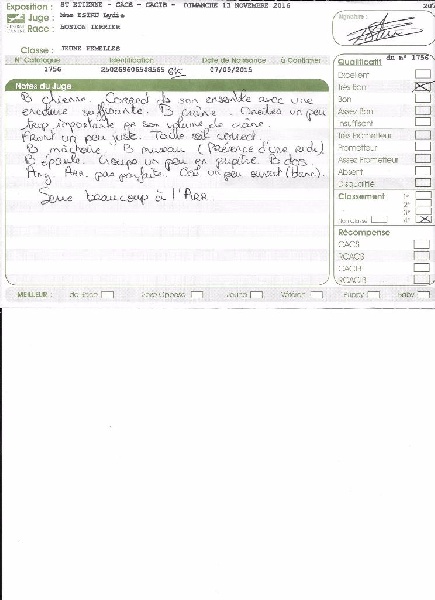 Exposition : ST ETIENNE - CACS - CACIB - DIMANCHE 13 NOVEMBRE 2016
Juge : Mme Lydie
Race : TERRIER
Signature :
Classe : JEUNE FEMELLES
N° Catalogue Identification Date de Naissance à Confirmer
1756 250269606548565 07/05/2015
Notes du Juge
B chienne. Correct ds son ensemble avec une
ossature suffisante. B crâne. Oreilles un peu
trop importante pr son volume de crâne.
Front un peu juste. Taille est correct.
B mâchoire. B museau (Présence d'une ride)
B épaule. Croupe un peu en pupitre. B dos.
Ang. Arr. pas parfaits. Osé un peu ouvert (barr).
Serre beaucoup à l'Arr
Qualificatif du n° 1756
Excellent
Très Bon
Bon
Assez Bon
Insuffisant
Très Prometteur
Prometteur
Assez Prometteur
Absent
Disqualifié
Classement 1°
2°
3°
Non Classé 4°
Récompense
CACS
RCACS
CACIB
RCACIB
MEILLEUR : de Race Sexe Opposé Jeune Vétéran Puppy Baby